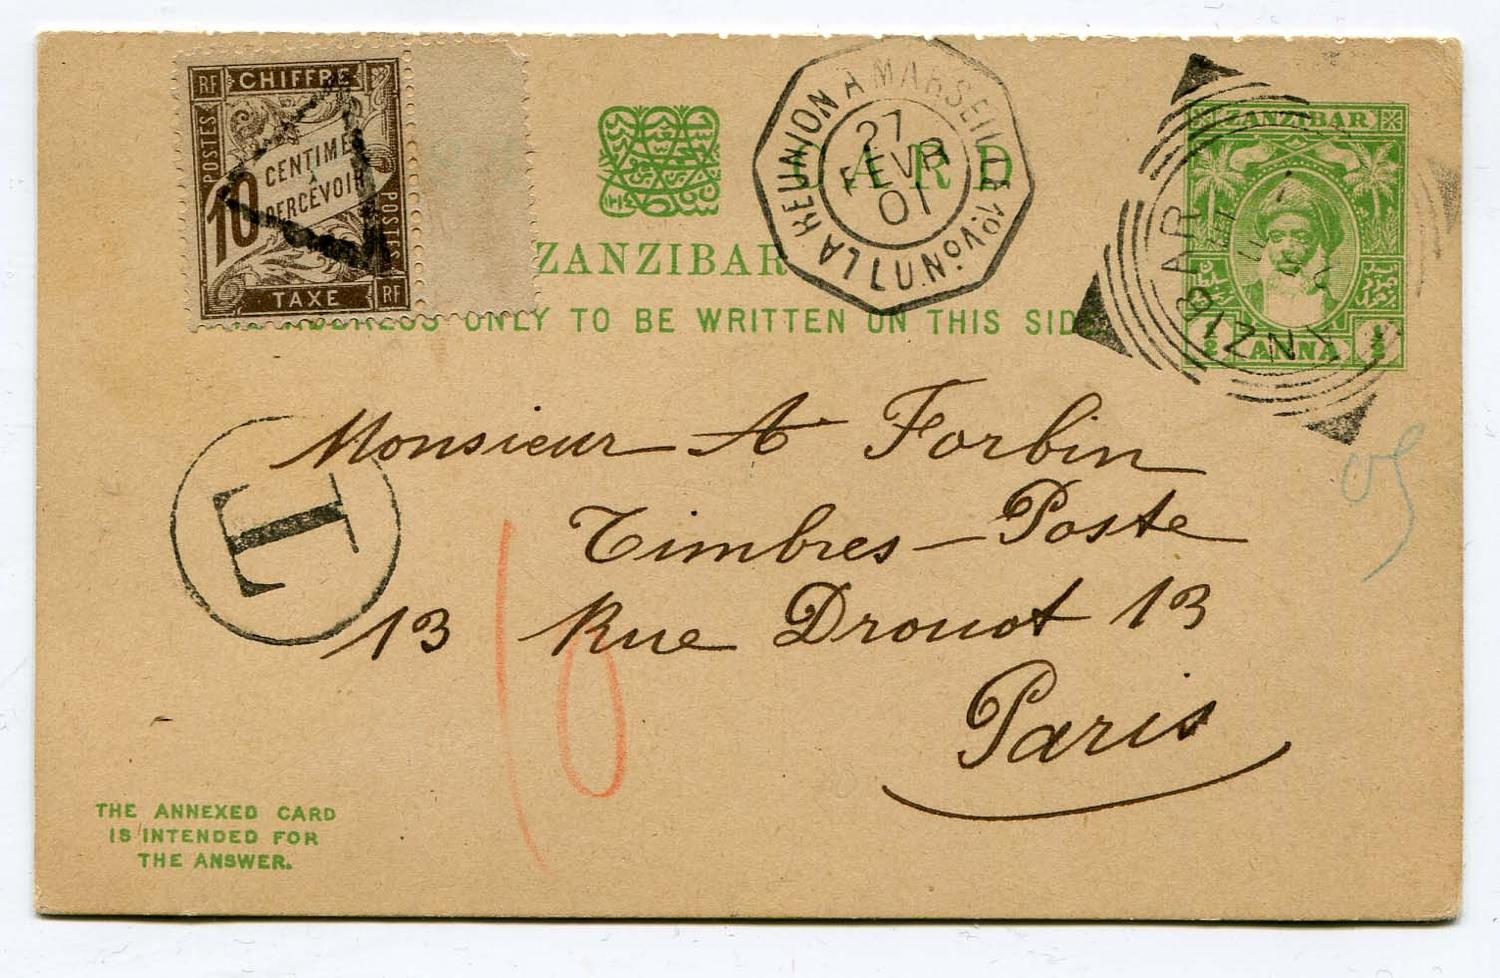 RF CHIFFRE
POSTES
10 CENTIMES
A
PERCEVOIR
POSTES
TAXE RF
CARD
ZANZIBAR
ADDRESS ONLY TO BE WRITTEN ON THIS SIDE
LA REUNION A MARSEILLE L.U.Nº1
27
FEVR
01
ZANZIBAR
ZANZIBAR
½ ANNA ½
T
Monsieur A Forbin
Timbres-Poste
13 Rue Drouot 13
Paris
10
THE ANNEXED CARD
IS INTENDED FOR
THE ANSWER.